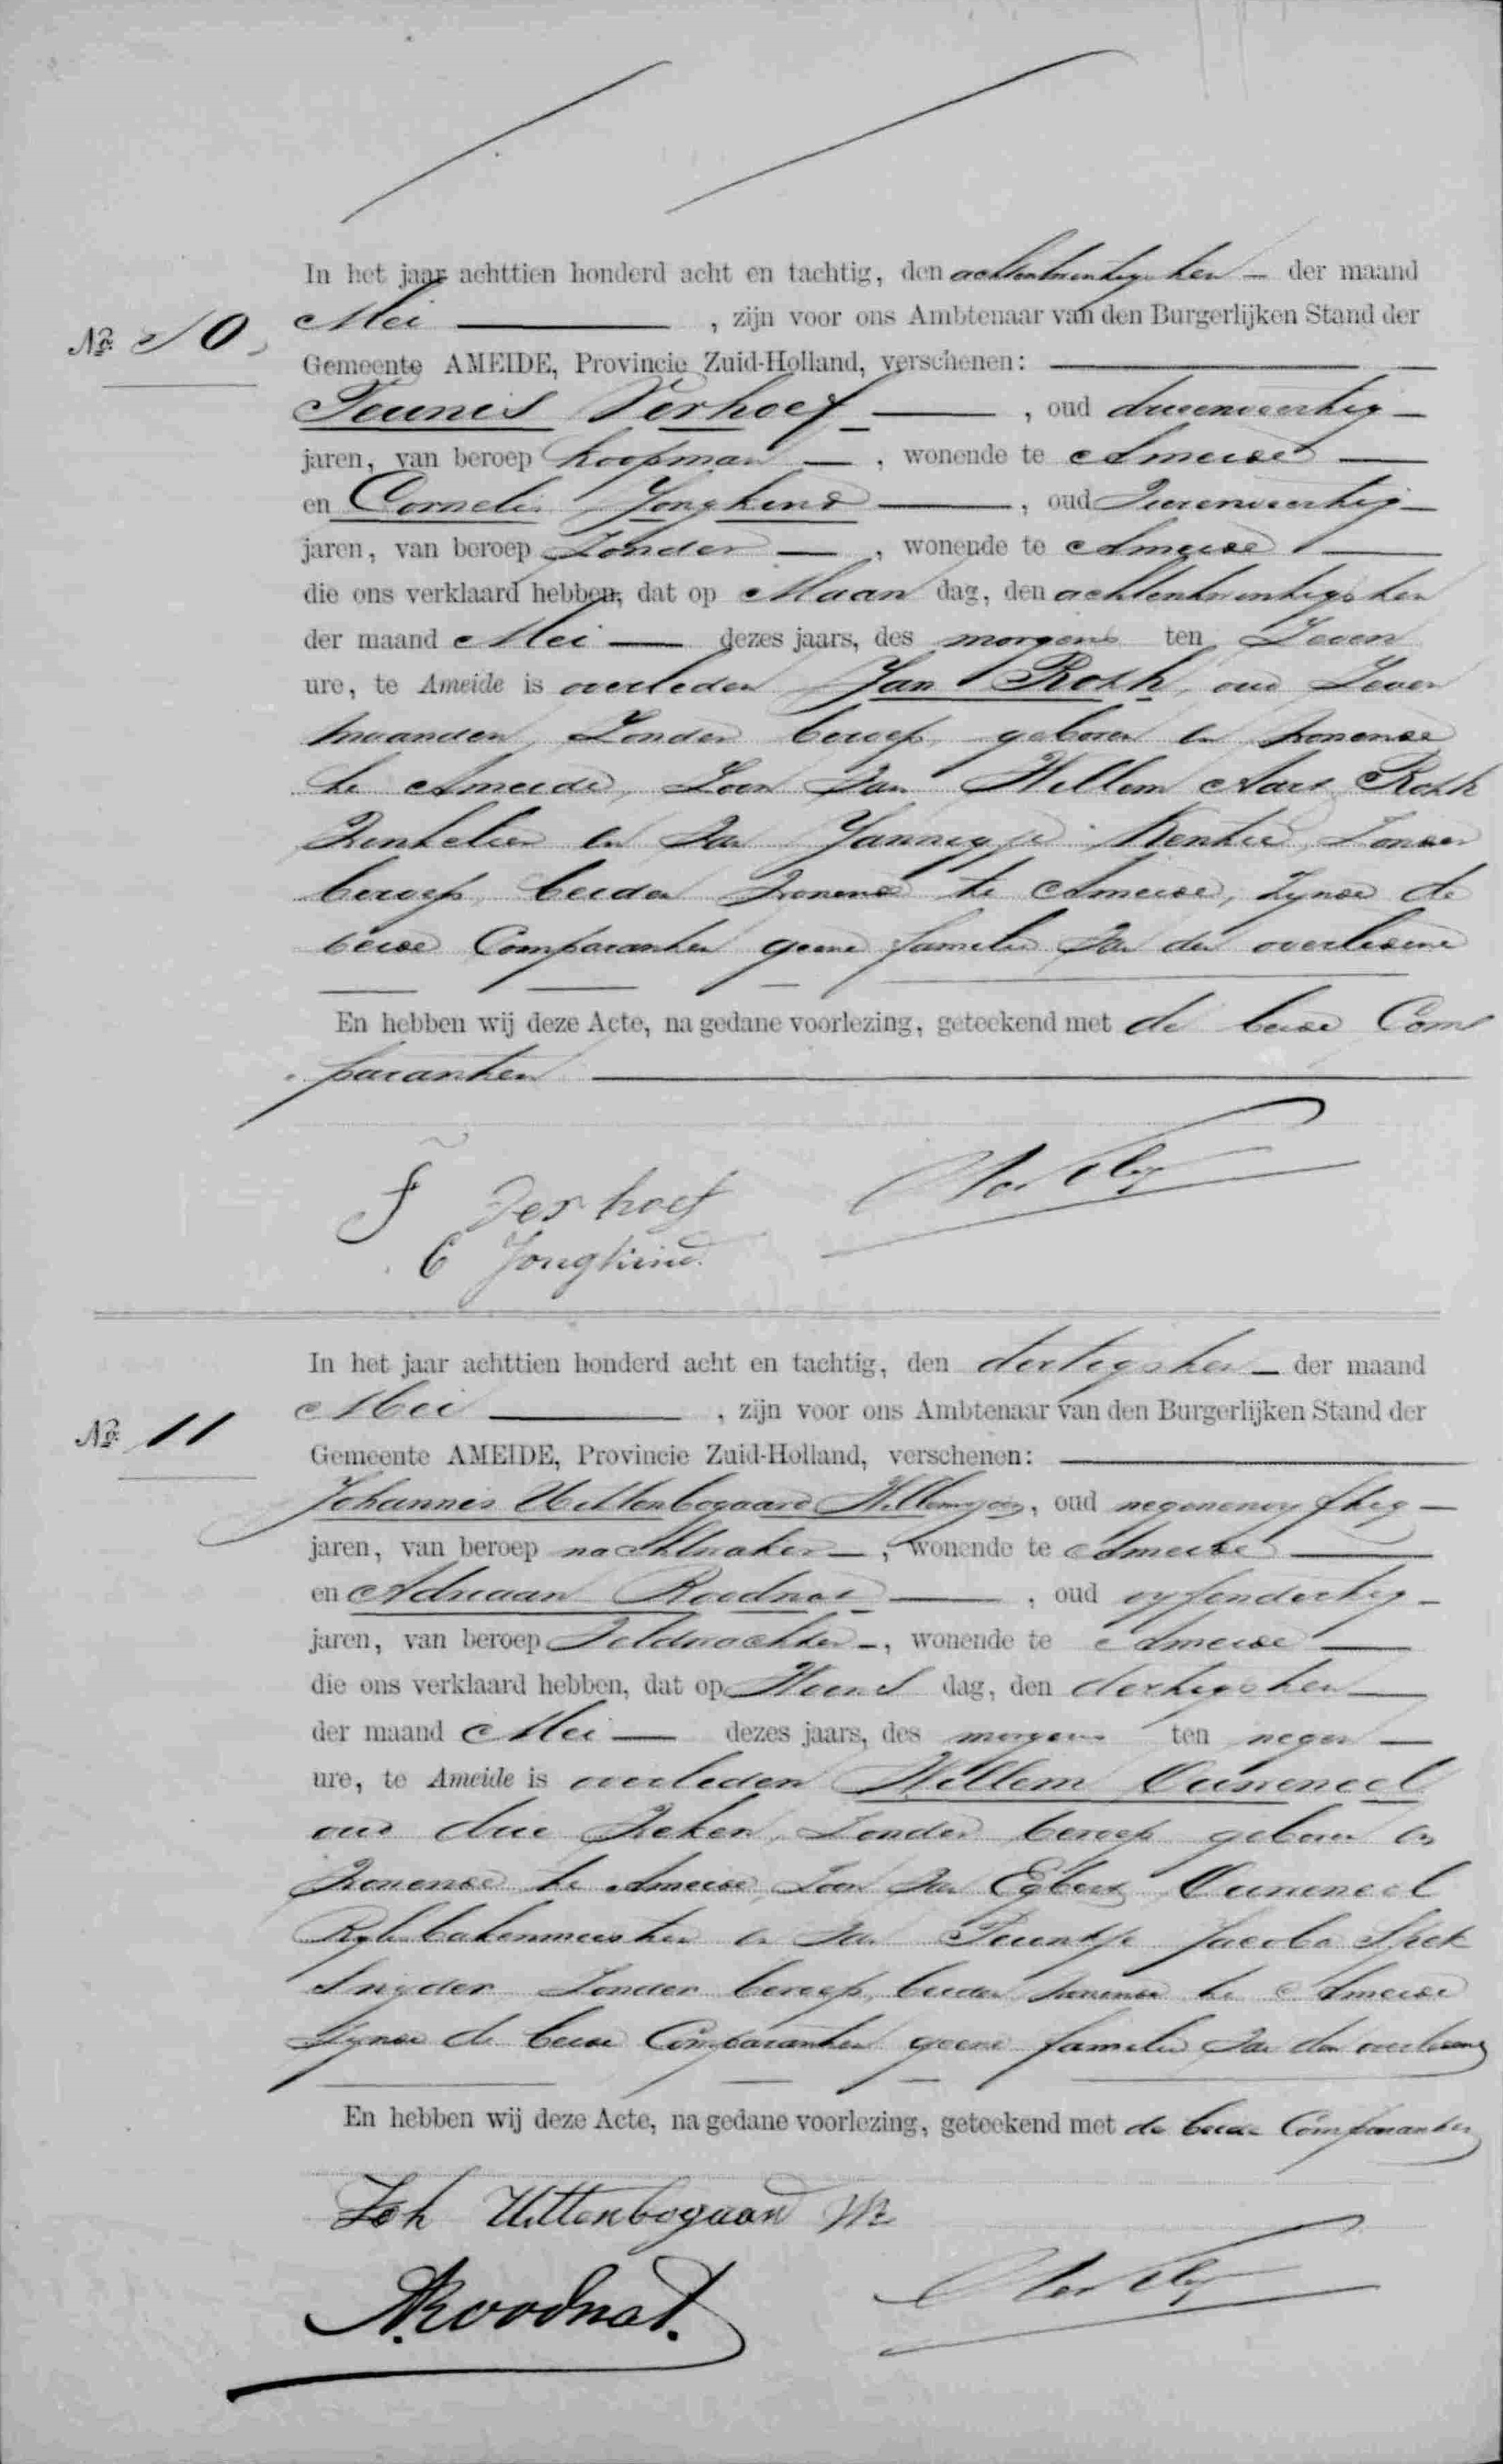 In het jaar achttien honderd acht en tachtig, den achtentwintigsten — der maand
No. 10. Mei —, zijn voor ons Ambtenaar van den Burgerlijken Stand der
Gemeente AMEIDE, Provincie Zuid-Holland, verschenen: —
Teunis Verhoef —, oud drieenveertig —
jaren, van beroep koopman —, wonende te Ameide —
en Cornelis Jongkind —, oud veertig —
jaren, van beroep Zonder —, wonende te Ameide —
die ons verklaard hebben, dat op Maan dag, den achtentwintigsten
der maand Mei — dezes jaars, des morgens ten Zeven
ure, te Ameide is overleden Jan Roth, oud Zeven
maanden, Zonder beroep, geboren en wonende
te Ameide, Zoon van Willem Aart Roth
Winkelier en van Jannigje Kentie, Zonder
beroep, beiden wonende te Ameide, Zynde de
beide Comparanten geene familie van den overledene
En hebben wij deze Acte, na gedane voorlezing, geteekend met de beide Com
paranten —
T Verhoef
C Jongkind.
In het jaar achttien honderd acht en tachtig, den dertigsten — der maand
No. 11 Mei —, zijn voor ons Ambtenaar van den Burgerlijken Stand der
Gemeente AMEIDE, Provincie Zuid-Holland, verschenen: —
Johannes Uittenbogaard Willemszoon, oud negenenvyftig —
jaren, van beroep nachtwaker —, wonende te Ameide —
en Adriaan Roodnat —, oud vyfendertig —
jaren, van beroep Veldwachter —, wonende te Ameide —
die ons verklaard hebben, dat op Woens dag, den dertigsten —
der maand Mei — dezes jaars, des morgens ten negen —
ure, te Ameide is overleden Willem
oud drie weken, Zonder beroep geboren en
wonende te Ameide, Zoon van Egbert
Rykbakenmeester en van Teuntje Jacoba Spek
Snyder Zonder beroep, beiden wonende te Ameide
Zynde de beide Comparanten geene familie van den overledene
En hebben wij deze Acte, na gedane voorlezing, geteekend met de beide Comparanten
Joh Uittenbogaard Wz
A. Roodnat.